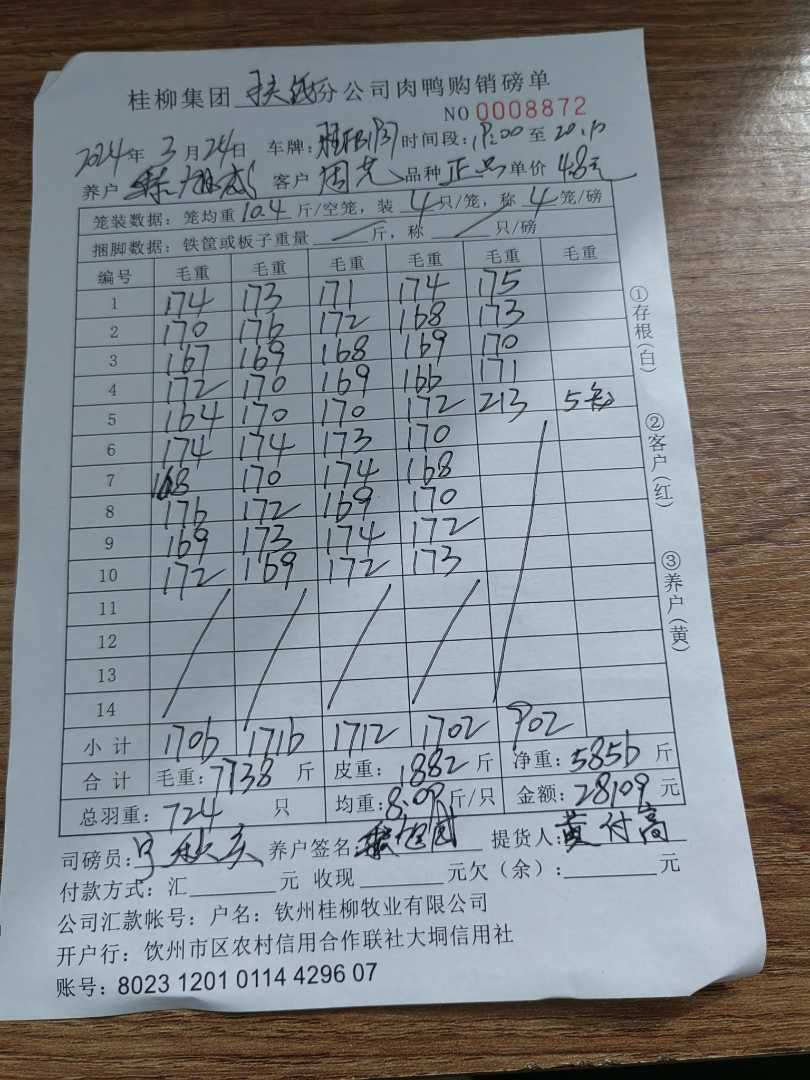 桂柳集团 扶绥分公司肉鸭购销磅单
NO 0008872
2024年 3月24日 车牌: 时间段:19:00 至 20:10
养户 客户 周光 品种 正品 单价 4.8元
笼装数据: 笼均重10.4斤/空笼, 装 4 只/笼, 称 4 笼/磅
捆脚数据: 铁筐或板子重量 / 斤, 称 / 只/磅
编号 毛重 毛重 毛重 毛重 毛重 毛重
1 174 173 171 174 175
2 170 176 172 168 173
3 167 169 168 169 170
4 172 170 169 166 171
5 164 170 170 172 213 5笼
6 174 174 173 170
7 168 170 174 168
8 176 172 169 170
9 169 173 174 172
10 172 169 172 173
11
12
13
14
小计 1706 1716 1712 1702 902
合计 毛重:7738 斤 皮重:1882 斤 净重:5856 斤
总羽重:724 只 均重:8.09斤/只 金额:28109 元
司磅员: 养户签名: 提货人:黄付高
付款方式: 汇 元 收现 元欠(余): 元
公司汇款帐号: 户名: 钦州桂柳牧业有限公司
开户行: 钦州市区农村信用合作联社大垌信用社
账号: 8023 1201 0114 4296 07
①存根(白)
②客户(红)
③养户(黄)